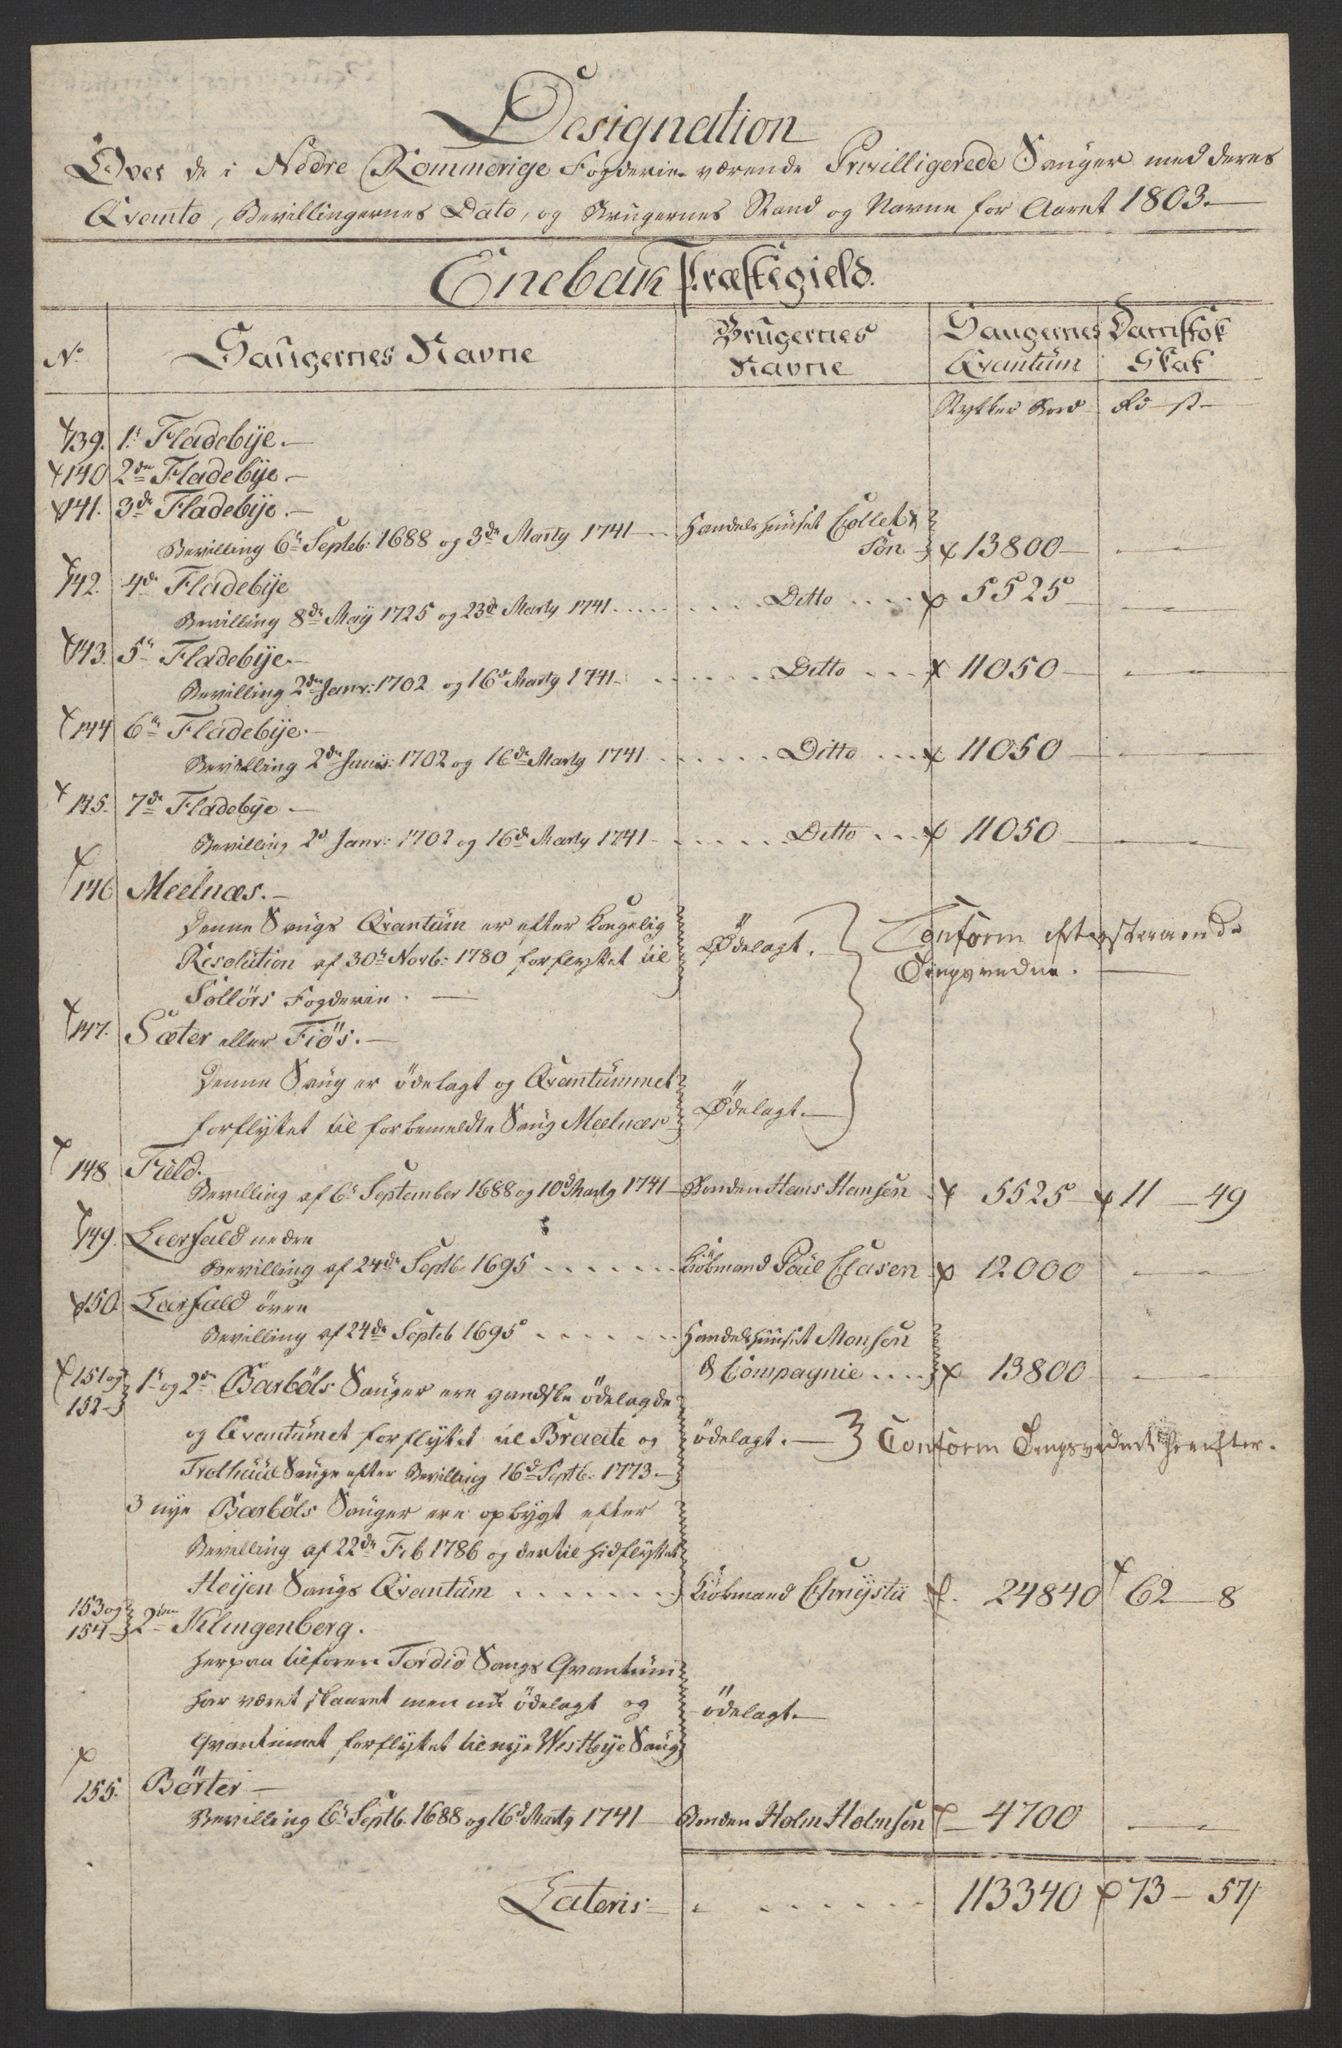 Designation
Over de i Nedre Rommerige Fogderie værende Privilligerede Sauger med deres
Qvanto, Bevillingernes Dato, og Brugernes Stand og Navne for Aaret 1803.
Enebak Præstegield.
No Saugernes Navne Brugernes Navne Saugernes Qvantum Damstok Skat
Stykker Bord Rd st
139. 1te Fladebÿe.
140 2den Fladebÿe.
141. 3de Fladebÿe.
Bevilling 6te Septeb: 1688 og 3de Marty 1741 Handelshuuset Collet &
Søn 13800
142. 4de Fladebÿe
Bevilling 8de Maÿ 1725 og 23de Marty 1741 Ditto 5525
143. 5te Fladebÿe.
Bevilling 2den Janr: 1702 og 16de Marty 1741 Ditto 11050
144 6te Fladebÿe.
Bevilling 2den Janr: 1702 og 16de Marty 1741 Ditto 11050
145. 7de Fladebÿe
Bevilling 2d Janr: 1702 og 16de Marty 1741 Ditto 11050
146 Meelnæs.
Denne Saugs Qvantum er efter Kongelig
Resolution af 30te Novb: 1780 forflyttet til Ødelagt. Conform efterstaaende
Sollörs Fogderie. Tingsvidne.
147. Sæter eller Fiös.
Denne Saug er ödelagt og Qvantummet
forflyttet til forbemeldte Saug Meelnæs Ødelagt.
148 Field.
Bevilling af 6te September 1688 og 10d Marty 1741 Bonden Hans Hansen 5525 11 49
149. Leerfald nedre
Bevilling af 24de Septb 1695 Kiöbmand Poul Clasen 12000
150 Leerfald övre
Bevilling af 24de Septeb 1695 Handelshuuset Monsen
& Compagnie 13800
151 og 152 1te og 2den Barböls Sauger ere gandske ödelagde
og Qvantumet forflÿtet til Braate og ödelagt. Conform Tingsvidnet herefter.
Trolhuul Sauge efter Bevilling 16d Septb: 1773.
3 nye Barböls Sauger ere opbygt efter
Bevilling af 22de Feb 1786 og dertil hidflyttet
Heyen Saugs Qvantum Kiöbmand Chrystii 24840 62 8
153 og 154 2de Klingenberg.
herpaa tilforen Tordid Saugs Qvantum
har været skaaret men nu ödelagt og ödelagt.
Qvantumet forflytet til nye Westbÿe Saug
155. Börter
Bevilling 6te Septb. 1688 og 16d Marty 1741 Bonden Holm Holmsen 4700
Lateris 113340 73 57